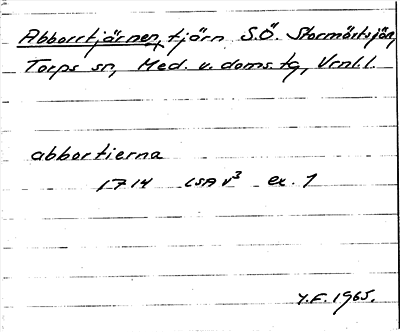 Abborrtjärnen, tjärn S.Ö. Stormörtsjön,
Torps sn, Med. v. doms. tg, Vrnl. l.
abbortierna
1714 LSA V³ ex. 1
Y.F. 1965.